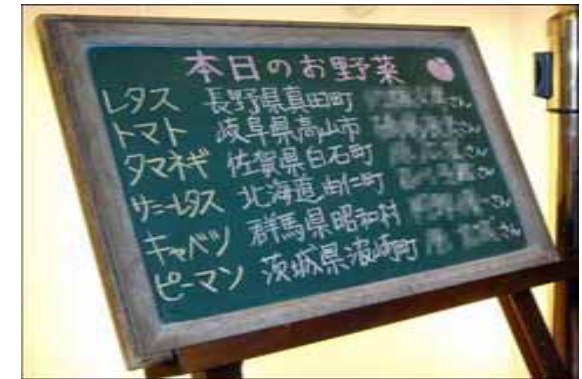 本日のお野菜
レタス 長野県真田町 さん
トマト 岐阜県高山市 さん
タマネギ 佐賀県白石町 さん
サニーレタス 北海道由仁町 さん
キャベツ 群馬県昭和村 さん
ピーマン 茨城県波崎町 さん